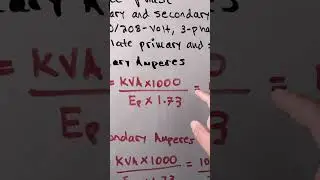 phase
ary and secondary
0/208-Volt, 3-pha
late primary and s
ary Amperes
= KVA×1000 =
Ep × 1.73
condary Amperes
KVA×1000 = 10